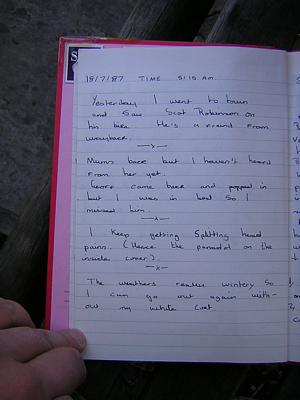 18/7/87 TIME 5:15 Am.
Yesterday I went to town
and Saw Scot Robinson on
his bike. He's a Friend From
wayback.
Mums back but I haven't heard
From her yet.
Geoff came back and popped in
but I was in bed So I
missed him.
I keep getting Splitting head
pains. (Hence the panadol on the
inside cover).
The weathers really wintery So
I can go out again with-
out my white coat.